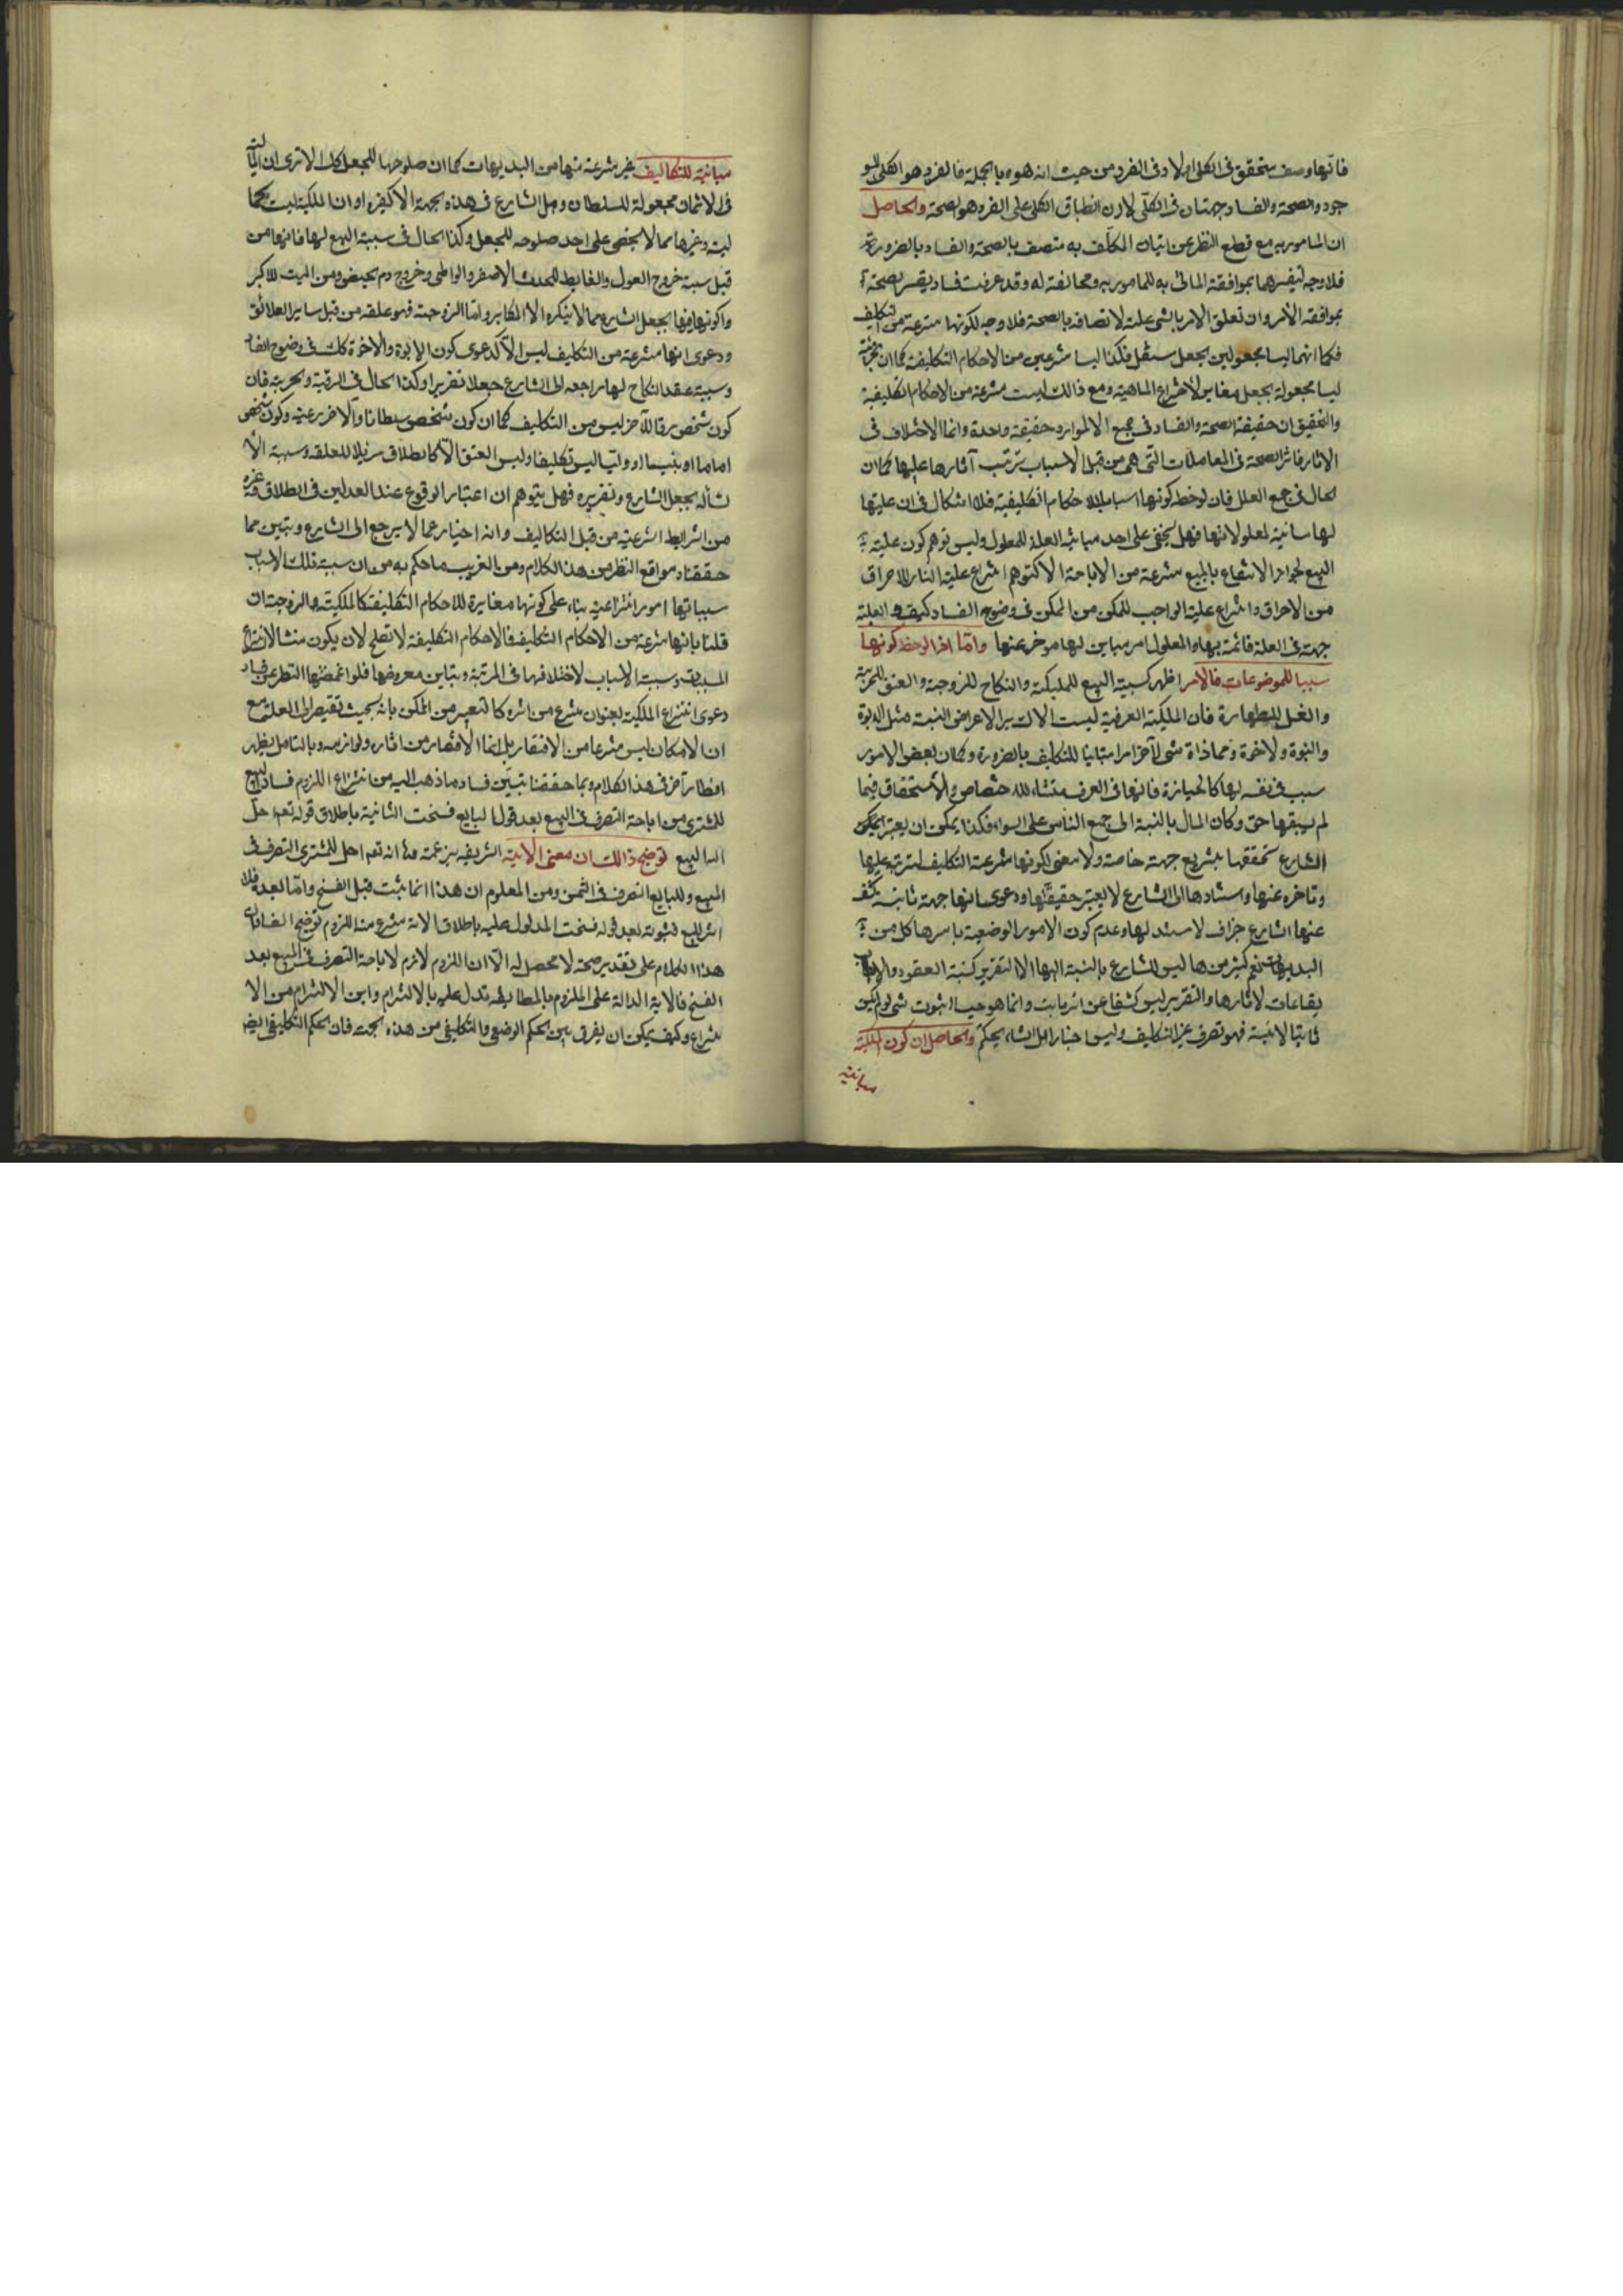 فانها وصف يتحقق فى الكلى اولا وفى الفرد من حيث انه هو وبالجملة فالفرد هو الكلى المو
جود والصحة والفساد جهتان فى الكلّى لان انطباق الكلى على الفرد هو الصحة والحاصل
ان المامور به مع قطع النظر عن اتيان المكلّف به متصف بالصحة والفساد بالضرورة
فلا وجه لتفسيرهما بموافقة الماتى به للمامور به ومخالفته له وقد عرفت فساد تفسير الصحة
بموافقة الأمر وان تعلق الامر بالشى علة لاتصافه بالصحة فلا وجه لكونها منتزعة من التكليف
فكما انهما ليسا مجعولين بجعل مستقل فكذا ليسا منتزعين من الاحكام التكليفية كما ان الجزئية
ليسا مجعولة بجعل مغاير لاختراع الماهية ومع ذالك ليست منتزعة من الاحكام التكليفية
والتحقيق ان حقيقة الصحة والفساد فى جميع الموارد حقيقة واحدة وانما الاختلاف فى
الاثار فاثر الصحة فى المعاملات التى هى من قبل الاسباب ترتب آثارها عليها كما ان
الحال فى جميع العلل فان لوحظ كونها اسبابا للاحكام التكليفية فلا اشكال فى ان عليتها
لها مباينة لمعلولاتها فهل يخفى على احد مباينة العلة للمعلول وليس توهم كون علية
البيع لجواز الانتفاع بالمبيع منتزعة من الاباحة الا كتوهم انتزاع علية النار للاحراق
من الاحراق وانتزاع علية الواجب للممكن من الممكن فى وضوح الفساد كيف والعلية
جهة فى العلة قائمة بها والمعلول امر مباين لها موخر عنها وامّا اذا لوحظ كونها
سببا للموضوعات فالامر اظهر كسببية البيع للملكية والنكاح للزوجية والعتق للحرية
والغسل للطهارة فان الملكية العرفية ليست الا كساير الاعراض النسبة مثل الابوة
والبنوة والاخوة ومحاذاة شى لآخر امرا مباينا للتكاليف بالضرورة وكان بعض الامور
سبب فى نفسه لها كالحيازة فانها فى العرف منشاء للاختصاص والاستحقاق فيما
لم يسبقها حق وكان المال بالنسبة الى جميع الناس على السواء فكذا يمكن ان يعتبر
الشارع تحققها بتشريع جهة خاصة ولا معنى لكونها منتزعة التكاليف لترتبه عليها
وتاخره عنها واستنادها الى الشارع لا يعتبر حقيقتها ودعوى انها جهة ثابتة كشف
عنها الشارع جزاف لا سند لها وعدم كون الامور الوضعية باسرها كل من
البديهيات نعم كثير من ها ليس للشارع بالنسبة اليها الا التقرير كنسبة العقود والا
يقاعات لاثارها والتقرير ليس كشفا عن اثر ثابت وانما هو حيث الثبوت شى لو لم يكن
ثابتا لاثبته فهو تصرف غير التكليف وليس اخبارا بل انشاء لحكم والحاصل ان كون الملكية
مباينة
مباينة للتكاليف غير منتزعة منها من البديهيات كما ان صلوحها للجعل كل الا ترى ان المالية
فى الاثمان مجعولة للسلطان وهل الشارع فى هذه الجهة الا كغيره او ان الملكية ليست كالما
لية وغيرها مما لا يخفى على احد صلوحه للجعل وكذا الحال فى سببية البيع لها فانها من
قبل سببية خروج البول والغايط للحدث الاصغر والواطى وخروج دم الحيض ومن الميت للاكبر
واكونها فيها بجعل الشارع مما لا ينكره الا المكابر وامّا الزوجية فهو علقة من قبل ساير العلائق
ودعوى انها منتزعة من التكليف ليس الّا كدعوى كون الابوة والاخوة كك فى وضوح الفساد
وسببية عقد النكاح لها راجعه الى الشارع جعلا تقريرا وكذا الحال فى الرقية والحرية فان
كون شخص رقا لآخر ليس من التكاليف كما ان كون شخص سلطانا والآخر رعية وكون شخص
اماما او نبيا او وليّا ليس تكليفا وليس العتق الّا كالطلاق مزيلا للعلقة وسببية الا
نشأله بجعل الشارع وتقريره فهل يتوهم ان اعتبار الوقوع عند العدلين فى الطلاق وغيره
من الشرايط الشرعية من قبل التكاليف وانه اخبار عما لا يرجع الى الشارع ويتبين مما
حققناه مواقع النظر من هذا الكلام ومن الغريب ما حكم به من ان سببية تلك الاسباب
سبباتها امور انتزاعية بناء على كونها مغايرة للاحكام التكليفية كالملكية والزوجية ان
قلنا بانها منتزعة من الاحكام التكليفية فالاحكام التكليفة لا تصلح لان يكون منشا لانتزاع
المسببات وسببية الاسباب لاختلافها فى المرتبة وتباين معروضها فلو اغمضنا النظر عن فساد
دعوى انتزاع الملكية لعنوان منتزع من اثره كالتعبير من الممكن بانه بحيث تقيصر الى العلة مع
ان الامكان ليس منتزعا من الافتقار بل انما الافتقار من اثاره ولوازمه وبالتامل يظهر
انظار آخر فى هذا الكلام وبما حققنا تبيّن فساد ما ذهب اليه من انتزاع اللزوم فساد البيع
للمشترى من اباحة التصرف فى المبيع بعد قول البايع فسخت الثانية باطلاق قوله تعم احل
الله البيع توضيح ذالك ان معنى الاية الشريفة بزعمه انه تعم احل للمشترى التصرف فى
المبيع وللبايع التصرف فى الثمن ومن المعلوم ان هذا انما يثبت قبل الفسخ وامّا بعده فلا
اثر للبيع فثبوته بعد قوله فسخت المدلول عليه باطلاق الاية منتزع منه اللزوم توضيح الفساد ان
هذا الكلام على تقدير صحته لا محصل له الّا ان اللزوم لازم لاباحة التصرف فى المبيع بعد
الفسخ فالاية الدالة على الملزوم بالمطابقة تدل عليه بالالتزام واين الالتزام من الا
نتزاع وكيف يمكن ان يفرق بين الحكم الوضعى والتكليفى من هذه الجهة فان الحكم التكليفى ايضا